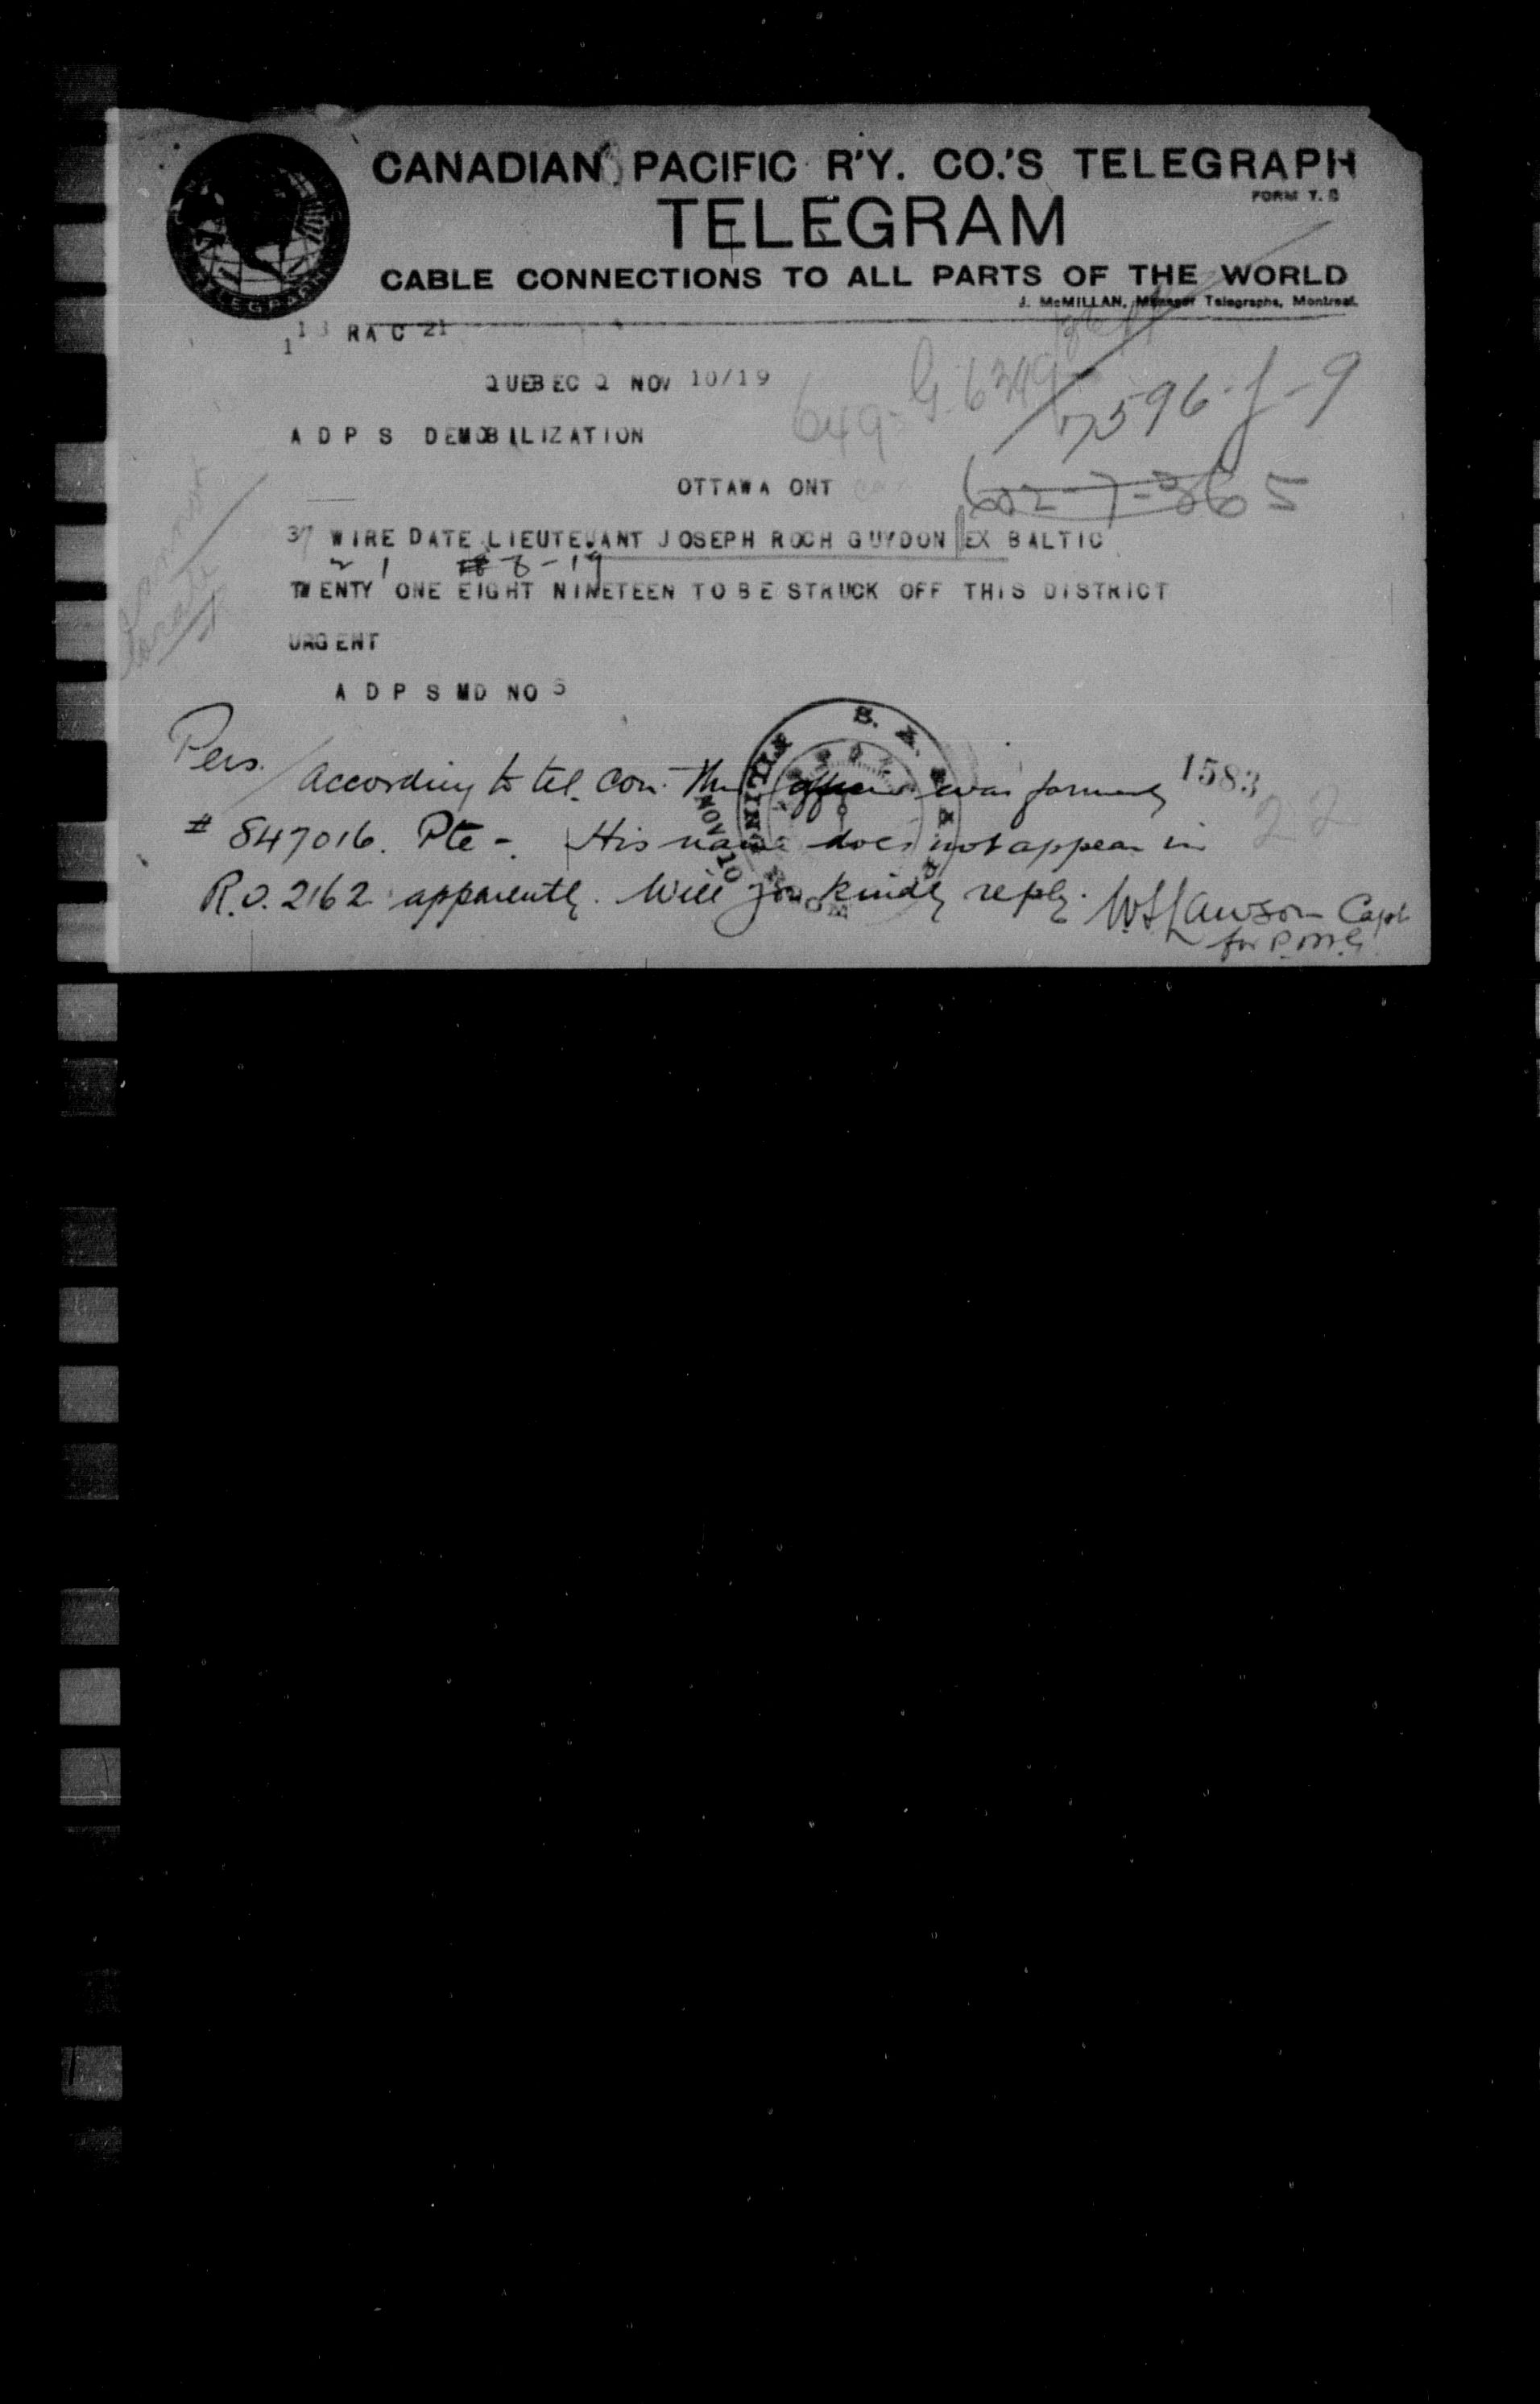 CANADIAN PACIFIC R'Y. CO.'S TELEGRAPH
FORM T. 
TELEGRAM
CABLE CONNECTIONS TO ALL PARTS OF THE WORLD
J. McMILLAN, Manager Telegraphs, Montreal.
RA C 21
QUEBEC Q NOV 10/19
649- G-6349
7596-J-9
A D P S DEMOBILIZATION
OTTAWA ONT
602-7-365
37 WIRE DATE LIEUTENANT JOSEPH ROCH GUYDON EX BALTIC
21 8-19
TWENTY ONE EIGHT NINETEEN TO BE STRUCK OFF THIS DISTRICT
Cannot
locate
URGENT
A D P S MD NO 5
Pers.
According to tel. con. this officer was formerly
1583
22
# 847016. Pte-. His name does not appear in
NOV 10
R.O. 2162 apparently. Will you kindly reply.
W.S. Lawson Capt
for P.M.G.